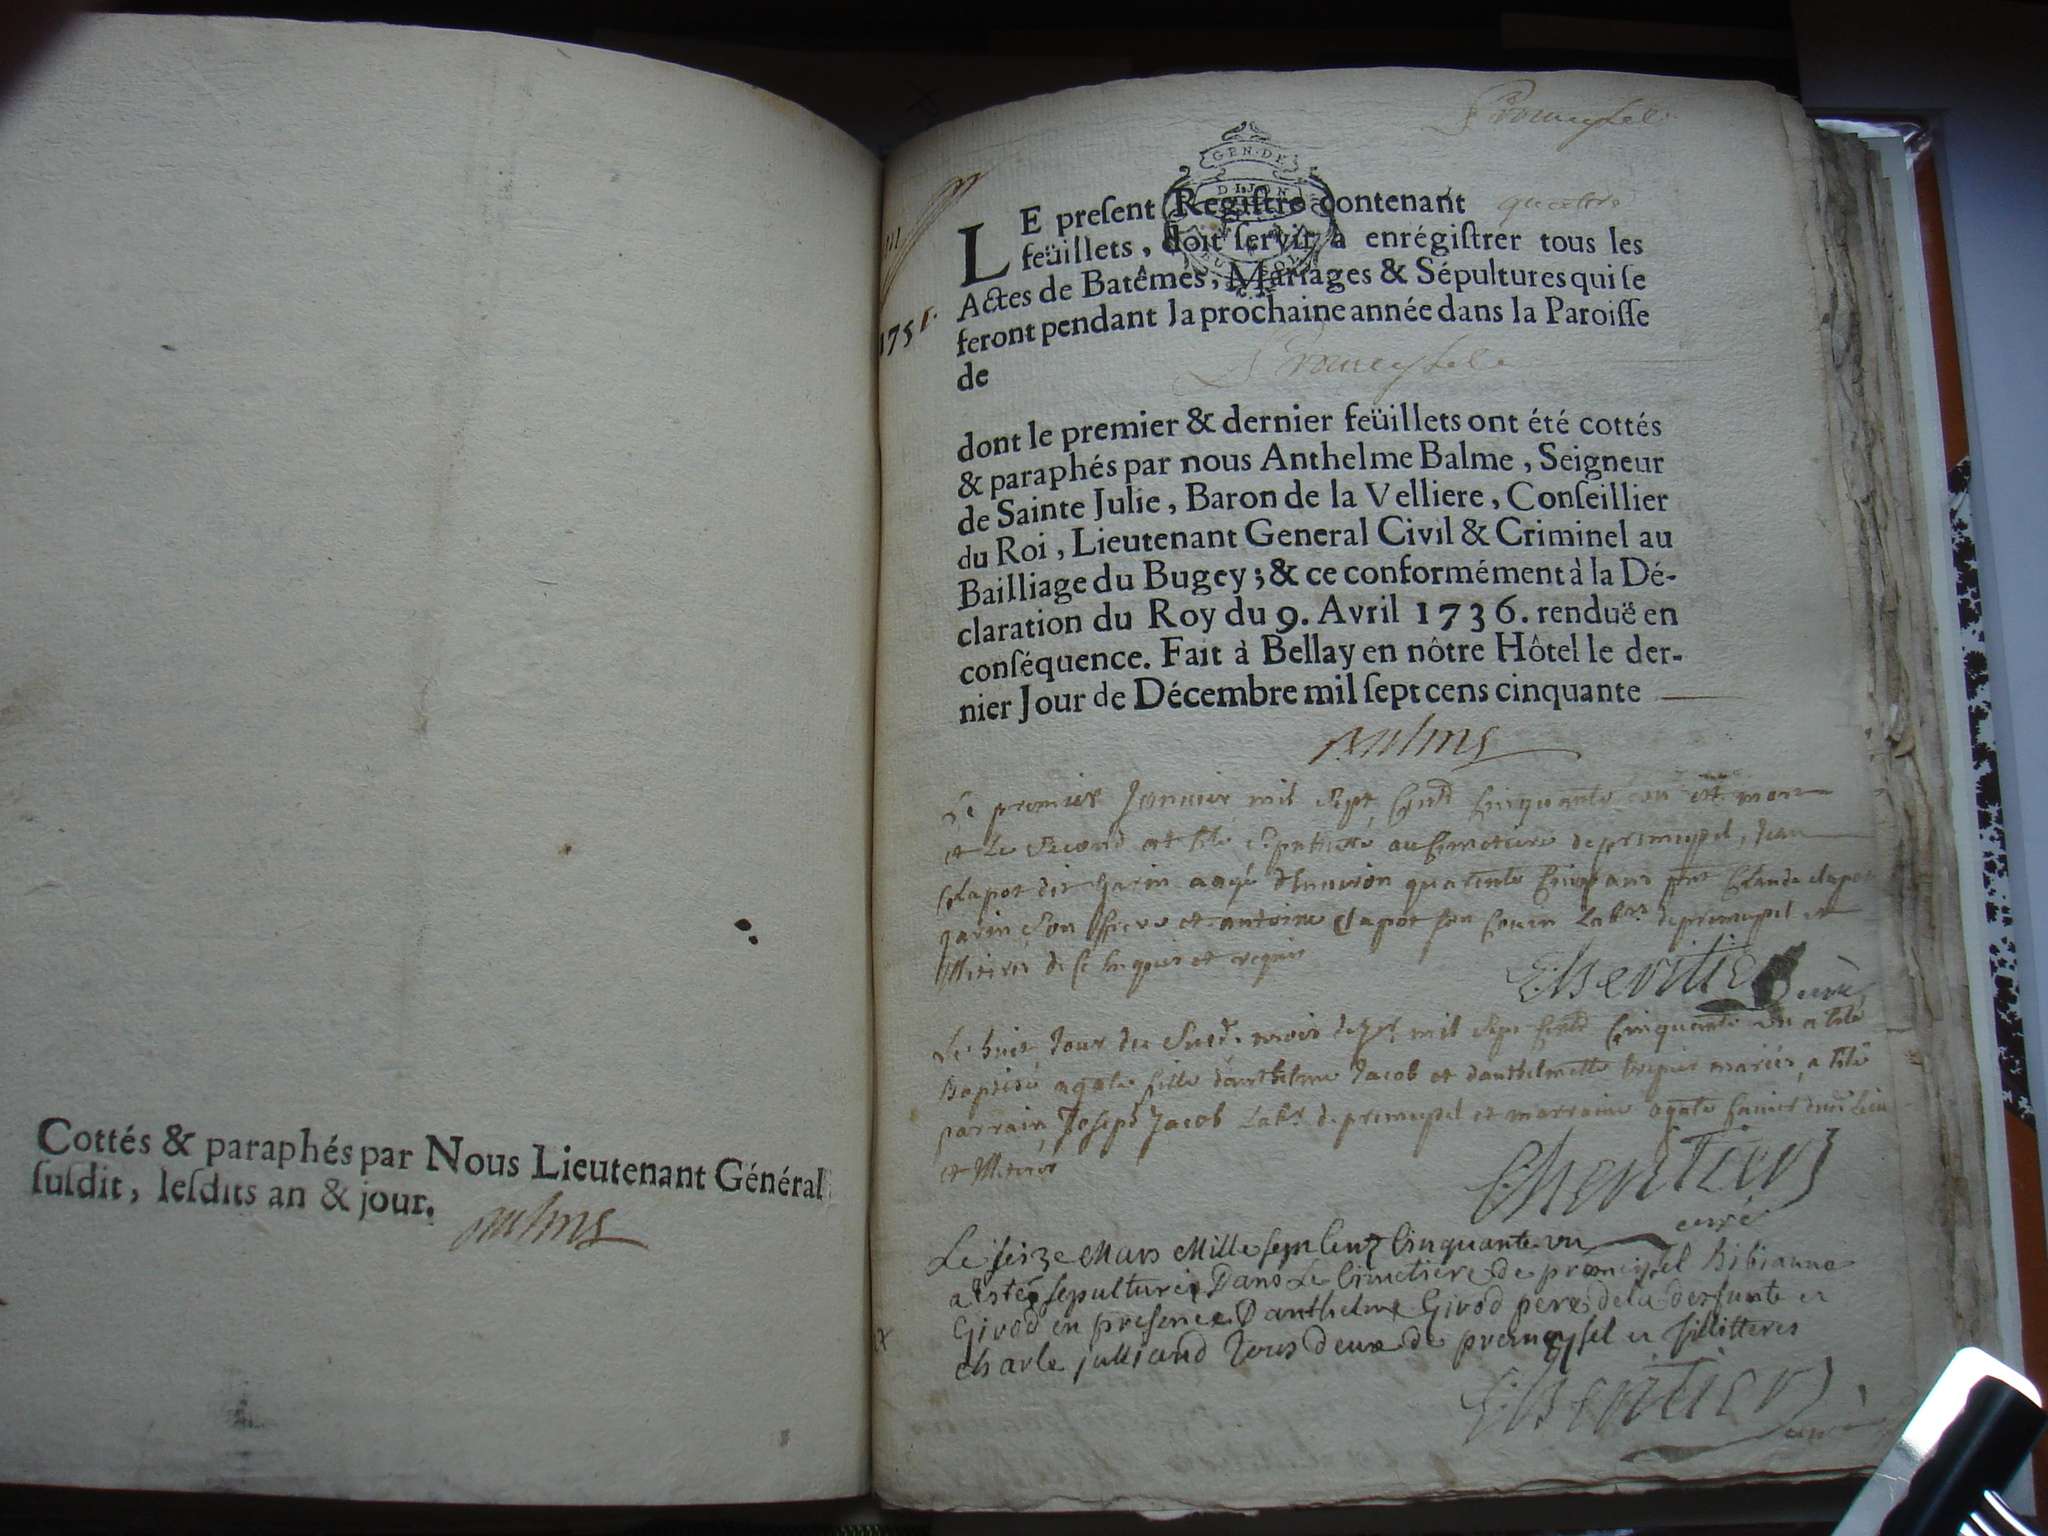 Cottés & paraphés par Nous Lieutenant Général
ſuſdit, leſdits an & jour.
GEN·DE
DIJON
1751.
LE preſent Regiſtre contenant quatre
feüillets, doit ſervir à enrégiſtrer tous les
Actes de Batêmes, Mariages & Sépultures qui ſe
feront pendant la prochaine année dans la Paroiſſe
de
dont le premier & dernier feüillets ont été cottés
& paraphés par nous Anthelme Balme, Seigneur
de Sainte Julie, Baron de la Velliere, Conſeillier
du Roi, Lieutenant General Civil & Criminel au
Bailliage du Bugey; & ce conformément à la Dé-
claration du Roy du 9. Avril 1736. renduë en
conſéquence. Fait à Bellay en nôtre Hôtel le der-
nier Jour de Décembre mil ſept cens cinquante
Le premier Janvier mil sept cent cinquante un est mort
et le second at été au cimetiere de premeysel, Jean
Clapot dit garin aagé d'environ quarente cinq ans Claude clapot
garin son frere et antoine clapot son cousin Labr. de premeysel et
de ce enquis et requis
curé
Le huit Jour du Susd. mois mil Sept cent cinquante un a été
Baptisé agate fille d'anthelme Jacob et d'anthelmette mariés, a été
parrain Joseph Jacob Labr. de premeysel et marraine agate
et
curé
Le seize Mars Mille sept cent cinquante un
a esté sepulturé Dans Le Cimetiere de premeysel Bibianne
Girod en presence D'anthelme Girod pere de la defunte et
charle julliand Tous deux de premeysel et illitteres
curé